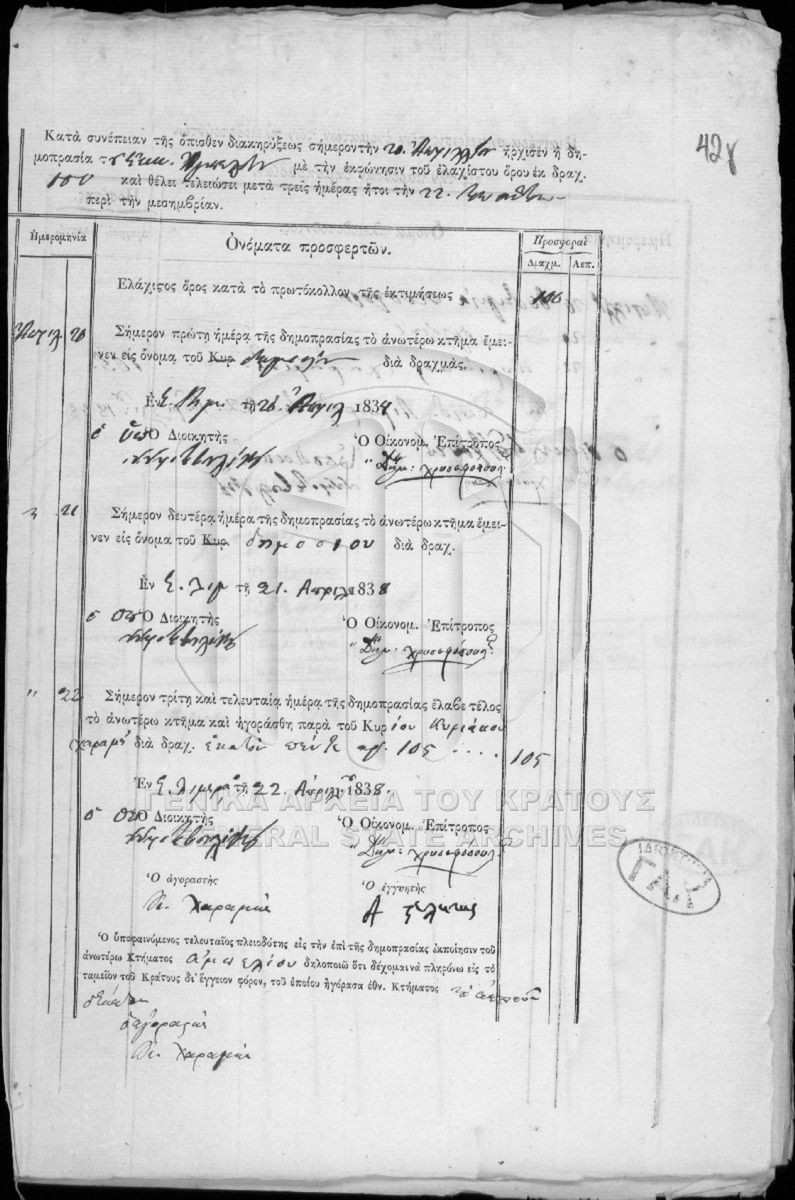 42γ
Κατὰ συνέπειαν τῆς ὄπισθεν διακηρύξεως σήμερον τὴν 20. Ἀπριλίου ἤρχισεν ἡ δη-
μοπρασία μὲ τὴν ἐκφώνησιν τοῦ ἐλαχίστου ὅρου ἐκ δραχ.
100 καὶ θέλει τελειώσει μετὰ τρεῖς ἡμέρας ἤτοι τὴν 22.
περὶ τὴν μεσημβρίαν.
Ἡμερομηνία
Ὀνόματα προσφερτῶν.
Προσφοραὶ
Δραχμ. Λεπ.
Ἐλάχιστος ὅρος κατὰ τὸ πρωτόκολλον τῆς ἐκτιμήσεως 100
Ἀπριλ 20 Σήμερον πρώτη ἡμέρα τῆς δημοπρασίας τὸ ἀνωτέρω κτῆμα ἔμει-
νεν εἰς ὄνομα τοῦ Κυρ. διὰ δραχμάς.
Ἐν τῇ 20 Ἀπριλ 1838
Ὁ Διοικητὴς Ὁ Οἰκονομ. Ἐπίτροπος
Δημ: Χρυσοφόπουλ
21 Σήμερον δευτέρα ἡμέρα τῆς δημοπρασίας τὸ ἀνωτέρω κτῆμα ἔμει-
νεν εἰς ὄνομα τοῦ Κυρ. δημοσίου διὰ δραχ.
Ἐν Ε. Λιμ τῇ 21. Ἀπριλ 1838
Ὁ Διοικητὴς Ὁ Οἰκονομ. Ἐπίτροπος
Δημ: Χρυσοφόπουλ
" 22 Σήμερον τρίτη καὶ τελευταία ἡμέρα τῆς δημοπρασίας ἔλαβε τέλος
τὸ ἀνωτέρω κτῆμα καὶ ἠγοράσθη παρὰ τοῦ Κυρίου Κυριάκου
Χαραμῆ διὰ δραχ. ἑκατὸν πέντε αρ. 105 .... 105
Ἐν Ε. Λιμερᾶ τῇ 22. Ἀπριλίου 1838.
Ὁ Διοικητὴς Ὁ Οἰκονομ. Ἐπίτροπος
Δημ: Χρυσοφόπουλ
ΓΕΝΙΚΑ ΑΡΧΕΙΑ ΤΟΥ ΚΡΑΤΟΥΣ
GENERAL STATE ARCHIVES
Ὁ ἀγοραστὴς Ὁ ἐγγυητὴς
Κ. Χαραμῆς
Ὁ ὑποφαινόμενος τελευταῖος πλειοδότης εἰς τὴν ἐπὶ τῆς δημοπρασίας ἐκποίησιν τοῦ
ἀνωτέρω Κτήματος ἀμπελίου δηλοποιῶ ὅτι δέχομαι νὰ πληρόνω εἰς τὸ
ταμεῖον τοῦ Κράτους δι' ἔγγειον φόρον, τοῦ ὁποίου ἠγόρασα ἐθν. Κτήματος
ὁ ἀγοραστής
Κ. Χαραμῆς
Γ.Α.Κ